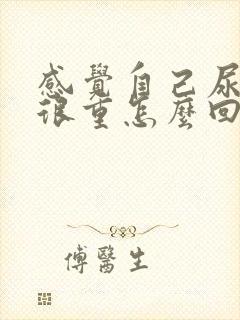 感覺自己尿
很重怎麼回
傅醫生